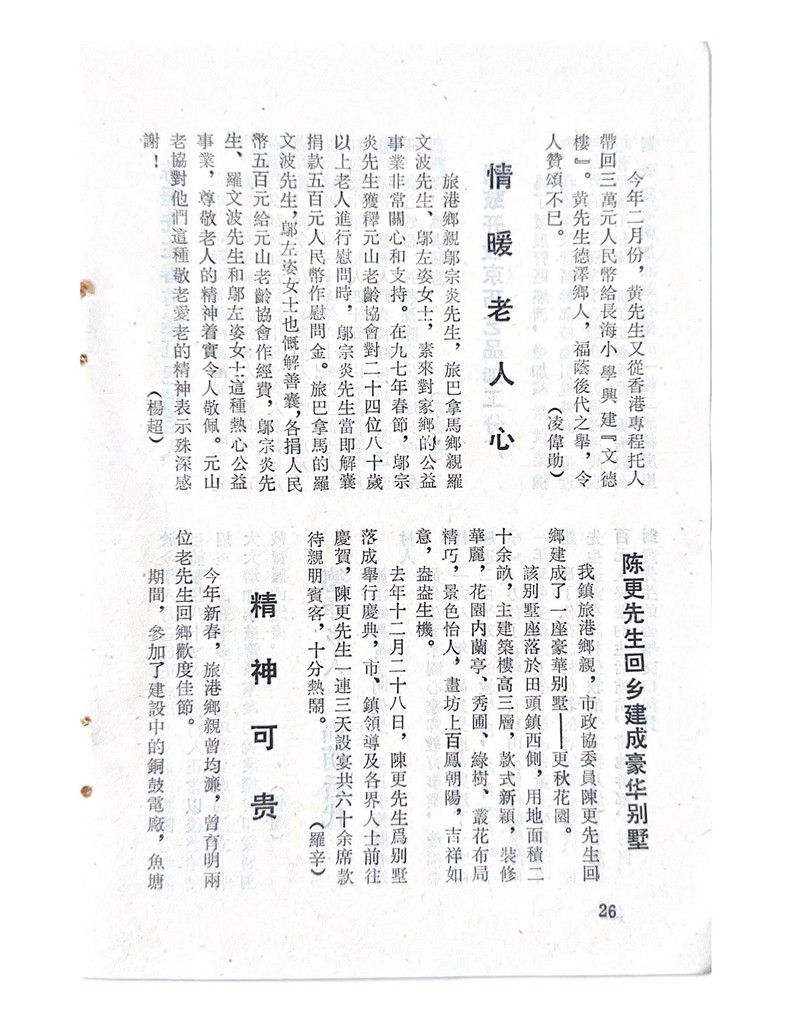 今年二月份，黄先生又從香港專程托人
帶回三萬元人民幣給長海小學興建『文德
樓』。黄先生德澤鄉人，福蔭後代之舉，令
人贊頌不巳。
（凌偉勛）
情暖老人心
旅港鄉親鄔宗炎先生，旅巴拿馬鄉親羅
文波先生、鄔左姿女士，素來對家鄉的公益
事業非常關心和支持。在九七年春節，鄔宗
炎先生獲釋元山老齡協會對二十四位八十歲
以上老人進行慰問時，鄔宗炎先生當即解囊
捐款五百元人民幣作慰問金。旅巴拿馬的羅
文波先生，鄔左姿女士也慨解善囊，各捐人民
幣五百元給元山老齡協會作經費，鄔宗炎先
生、羅文波先生和鄔左姿女士這種熱心公益
事業，尊敬老人的精神着實令人敬佩。元山
老協對他們這種敬老愛老的精神表示殊深感
謝！
（楊超）
陈更先生回乡建成豪华别墅
我鎮旅港鄉親，市政協委員陳更先生回
鄉建成了一座豪華别墅——更秋花園。
該别墅座落於田頭鎮西側，用地面積二
十余畝，主建築樓高三層，款式新穎，裝修
華麗，花園内蘭亭、秀圃、綠樹、叢花布局
精巧，景色怡人，畫坊上百鳳朝陽，吉祥如
意，盎盎生機。
去年十二月二十八日，陳更先生爲别墅
落成舉行慶典，市、鎮領導及各界人士前往
慶賀，陳更先生一連三天設宴共六十余席款
待親朋賓客，十分熱鬧。
（羅辛）
精神可贵
今年新春，旅港鄉親曾均濂，曾育明兩
位老先生回鄉歡度佳節。
期間，參加了建設中的銅鼓電廠，魚塘
26